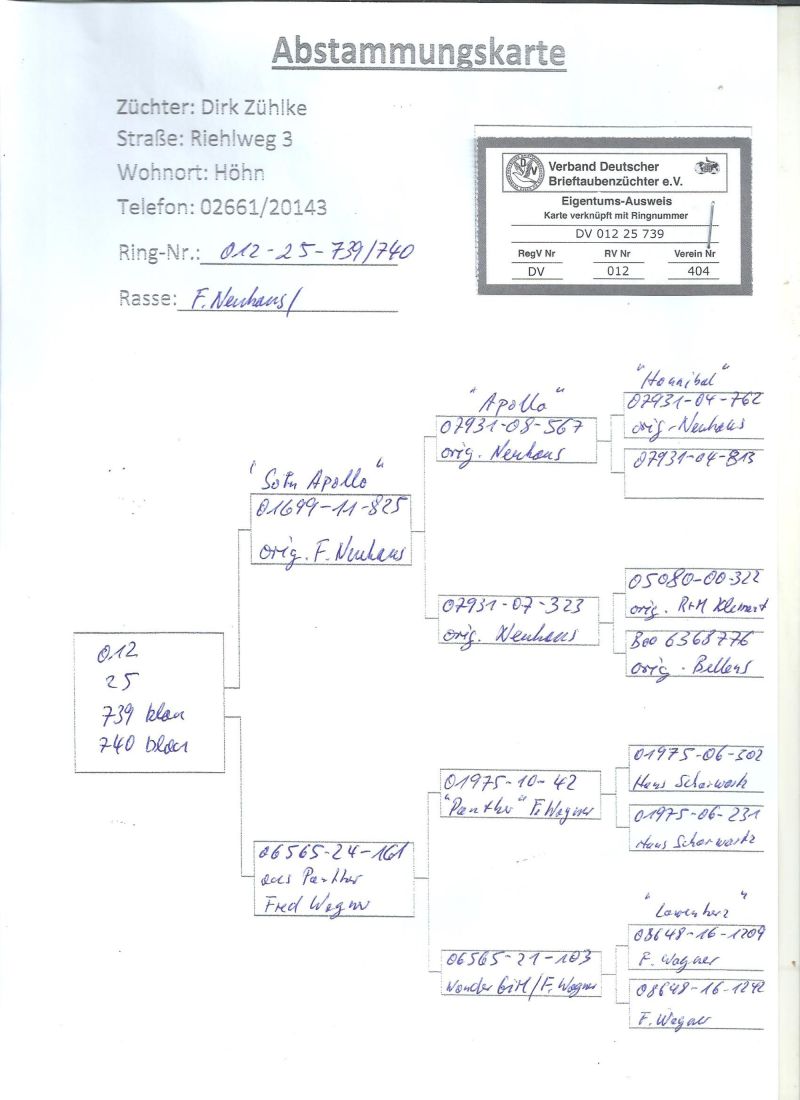 Abstammungskarte
Züchter: Dirk Zühlke
Straße: Riehlweg 3
Wohnort: Höhn
Telefon: 02661/20143
Ring-Nr.: 012-25-739/740
Rasse: F. Neuhaus/
Verband Deutscher
Brieftaubenzüchter e.V.
Eigentums-Ausweis
Karte verknüpft mit Ringnummer
DV 012 25 739
RegV Nr RV Nr Verein Nr
DV 012 404
"Hannibal"
07931-04-762
orig. Neuhaus
07931-04-813
"Apollo"
07931-08-567
orig. Neuhaus
"Sohn Apollo"
01699-11-825
orig. F. Neuhaus
05080-00-322
orig. R+M Klement
07931-07-323
orig. Neuhaus
6368776
orig. Bellens
012
25
739 blau
740 blau
01975-06-302
Hans
01975-10-42
"Panther" F. Wagner
01975-06-231
Hans
06565-24-161
aus Panther
Fred Wagner
"Löwenherz"
08648-16-1209
F. Wagner
06565-21-103
Wonder Girl/F. Wagner
08648-16-1242
F. Wagner